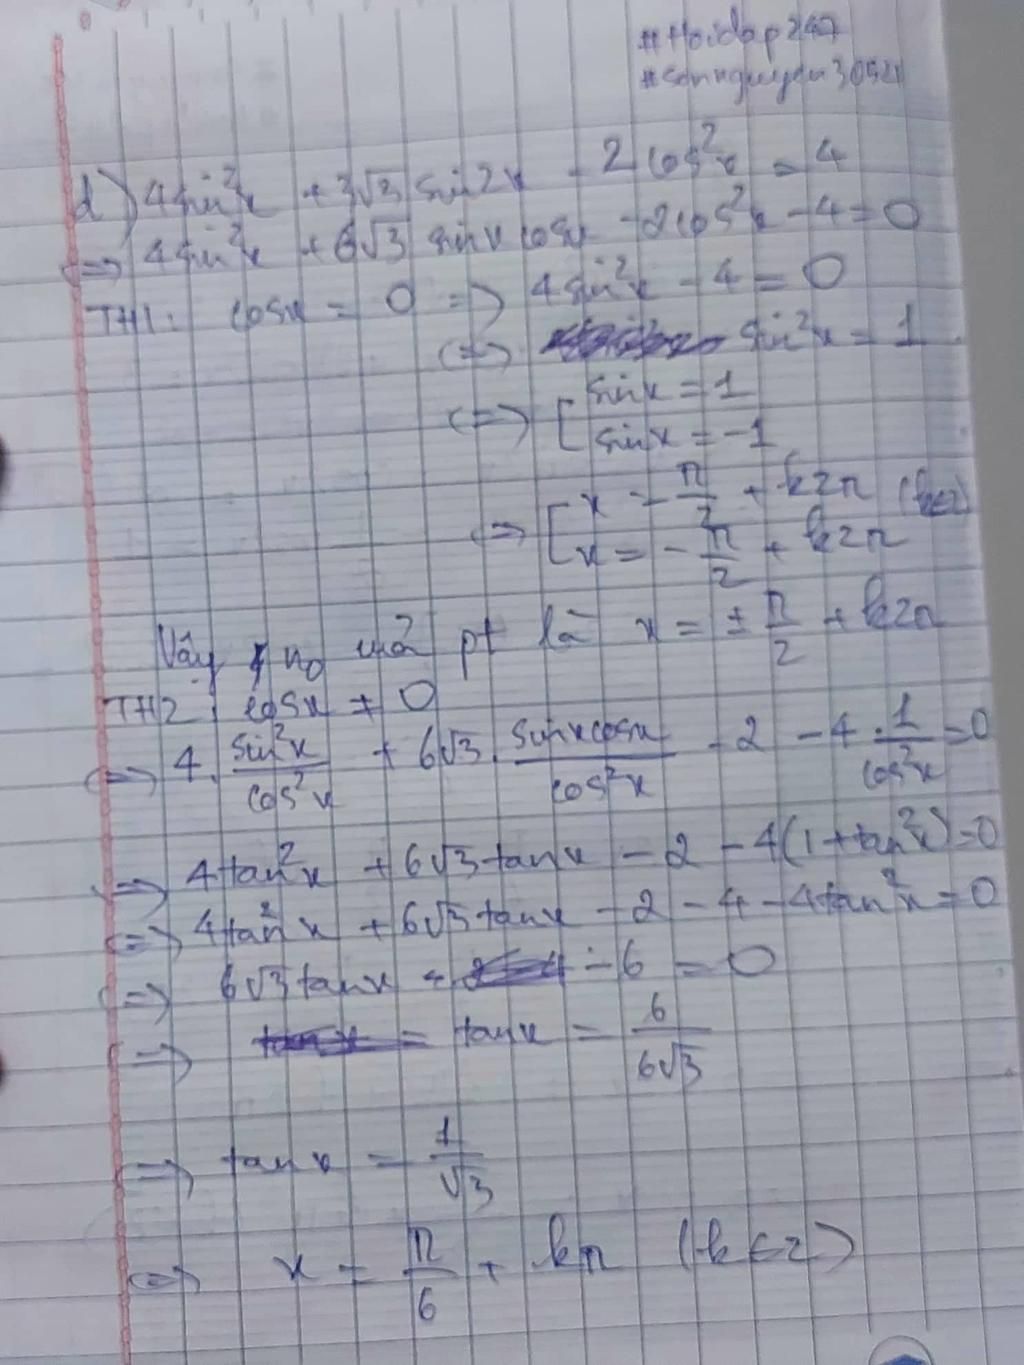 #Hoidap247
#sonnguyen30521
d) 4sin²x + 3√3 sin2x - 2cos²x = 4
<=> 4sin²x + 6√3 sinxcosx - 2cos²x - 4 = 0
TH1: cosx = 0 => 4sin²x - 4 = 0
<=> sin²x = 1
<=> [ sinx = 1
sinx = -1
<=> [ x = π/2 + k2π (k∈Z)
x = -π/2 + k2π
Vậy no của pt là x = ± π/2 + k2π
TH2: cosx ≠ 0
<=> 4. sin²x/cos²x + 6√3. sinxcosx/cos²x - 2 - 4. 1/cos²x = 0
<=> 4tan²x + 6√3tanx - 2 - 4(1+tan²x)=0
<=> 4tan²x + 6√3tanx - 2 - 4 - 4tan²x = 0
<=> 6√3tanx - 6 = 0
<=> tanx = 6/6√3
<=> tanx = 1/√3
<=> x = π/6 + kπ (k∈Z)